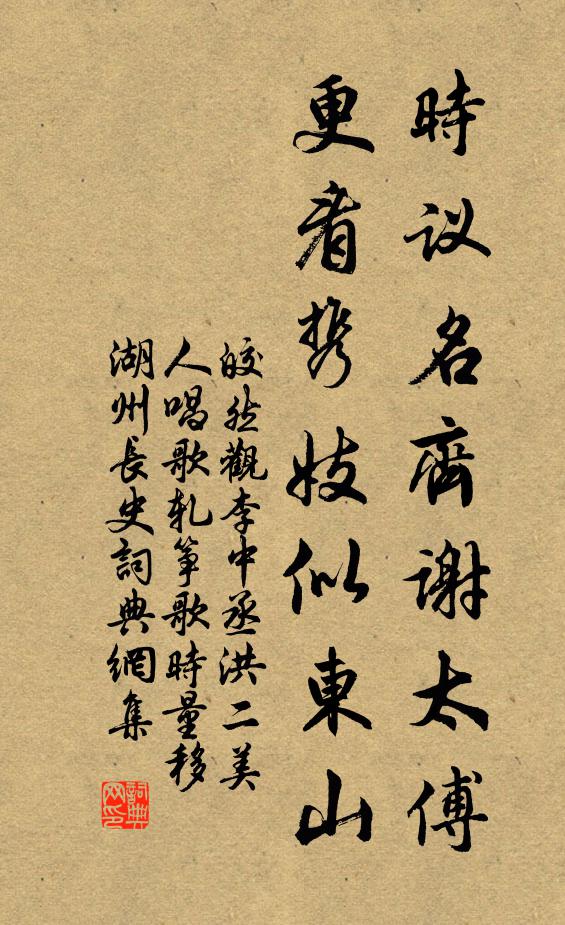 時议名齊謝太傅
更看携妓似東山
皎然觀李中丞洪二美
人唱歌軋筝歌時量移
湖州長史詞典網集
詞典
网印